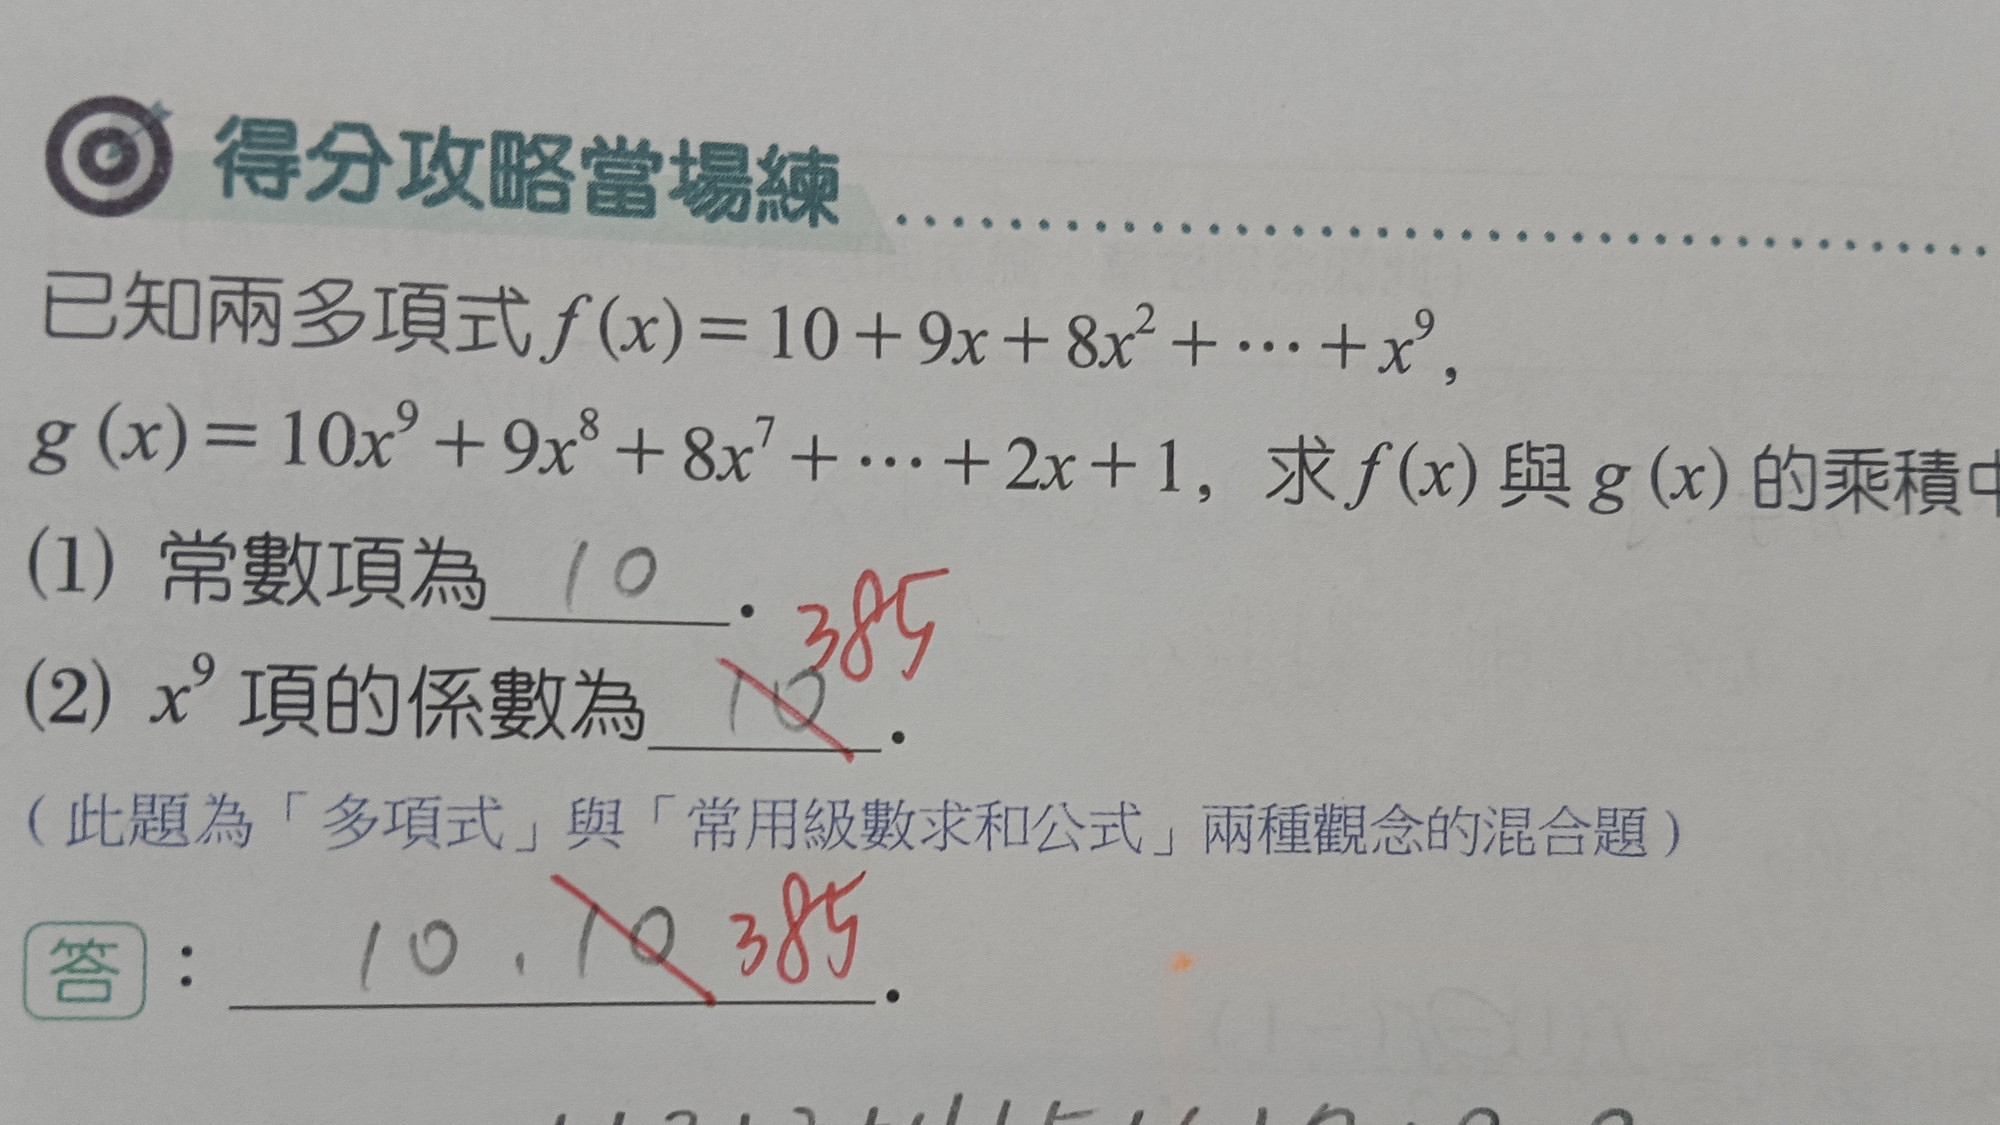 得分攻略當場練
已知兩多項式 f(x)=10+9x+8x²+⋯+x⁹,
g(x)=10x⁹+9x⁸+8x⁷+⋯+2x+1, 求 f(x) 與 g(x) 的乘積中
(1) 常數項為 10 .
385
(2) x⁹ 項的係數為 10 .
(此題為「多項式」與「常用級數求和公式」兩種觀念的混合題)
答: 10 . 10 385 .